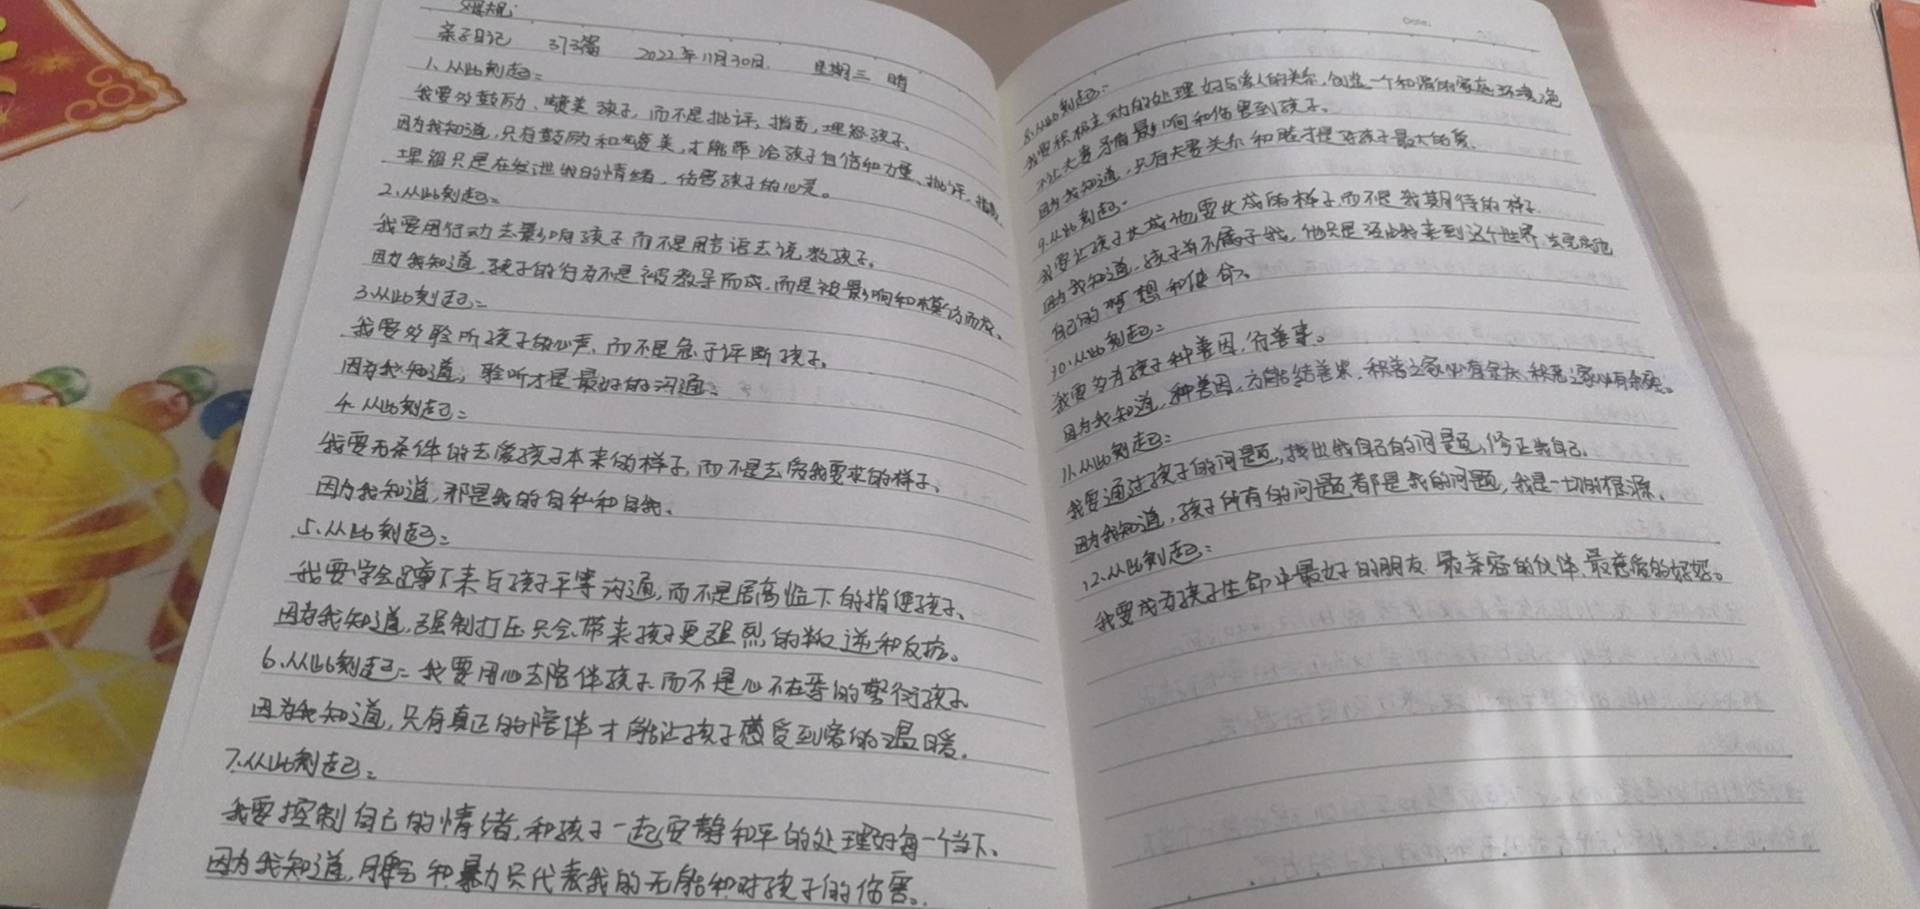 亲子日记 373篇 2022年11月30日 星期三 晴
1、从此刻起：
我要多鼓励、赞美孩子，而不是批评、指责、埋怨孩子。
因为我知道，只有鼓励和赞美，才能带给孩子自信和力量、批评、指责
埋怨只是在发泄我的情绪，伤害孩子的心灵。
2、从此刻起：
我要用行动去影响孩子而不是用言语去说教孩子。
因为我知道，孩子的行为不是被教导而成，而是被影响和模仿而成。
3、从此刻起：
我要多聆听孩子的心声，而不是急于评断孩子。
因为我知道，聆听才是最好的沟通。
4、从此刻起：
我要无条件的去爱孩子本来的样子，而不是去爱我要求的样子。
因为我知道，那是我的自私和自我。
5、从此刻起：
我要学会蹲下来与孩子平等沟通，而不是居高临下的指使孩子、
因为我知道，强制打压只会带来孩子更强烈的叛逆和反抗。
6、从此刻起：我要用心去陪伴孩子而不是心不在焉的敷衍孩子
因为我知道，只有真正的陪伴才能让孩子感受到爱的温暖。
7、从此刻起：
我要控制自己的情绪，和孩子一起安静和平的处理好每一个当下、
因为我知道，脾气和暴力只代表我的无能和对孩子的伤害。
8、从此刻起：
我要积极主动的处理好与爱人的关系，创造一个和谐的家庭环境，绝
不让夫妻矛盾影响和伤害到孩子。
因为我知道，只有夫妻关系和睦才是对孩子最大的爱、
9、从此刻起：
我要让孩子长成他要长成的样子而不是我期待的样子
因为我知道，孩子并不属于我，他只是经由我来到这个世界 去完成他
自己的梦想和使命。
10、从此刻起：
我要多为孩子种善因，行善事。
因为我知道，种善因，方能结善果，积善之家必有余庆，积恶之家必有余殃。
11、从此刻起：
我要通过孩子的问题，找出我自己的问题，修正我自己。
因为我知道，孩子所有的问题，都是我的问题，我是一切的根源、
12、从此刻起：
我要成为孩子生命中最好的朋友 最亲密的伙伴，最慈爱的妈妈。